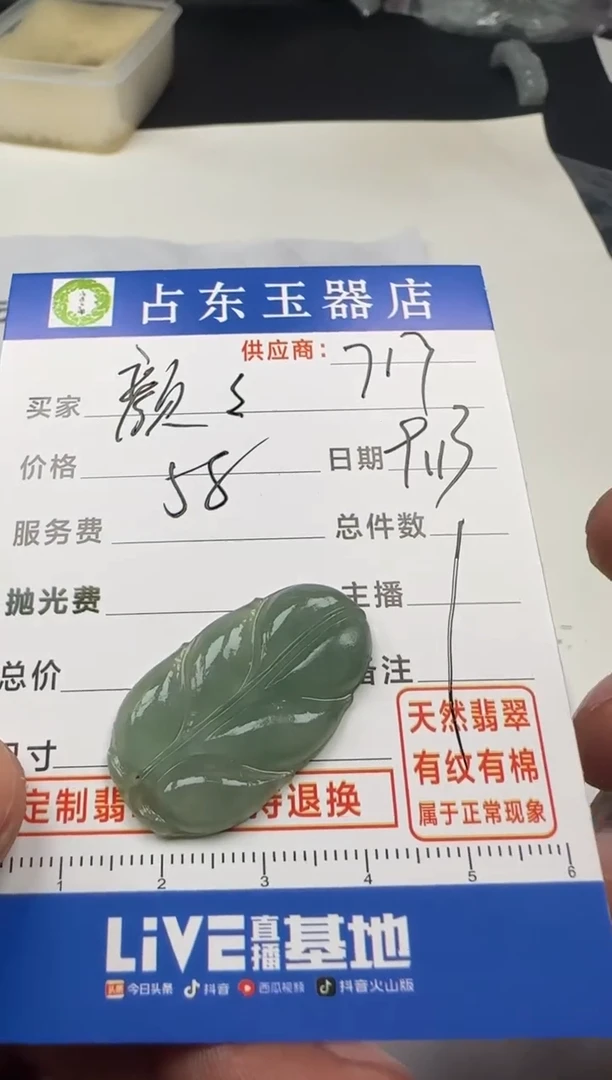 占东玉器店
供应商: 717
买家 颜
价格 58 日期
服务费 总件数
抛光费 主播
总价 备注
寸
天然翡翠
有纹有棉
属于正常现象
定制翡 退换
1 2 3 4 5 6
LiVE直播基地
今日头条 抖音 西瓜视频 抖音火山版